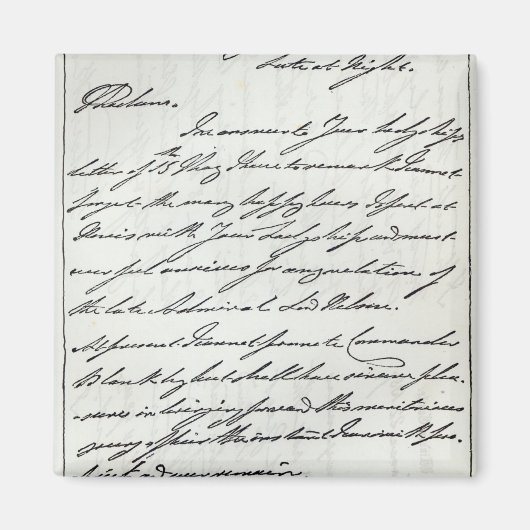 Late at Night.
Madam.
In answer to Your Ladyships
letter of 15th May I have to remark I cannot
forget the many happy hours I spent at
with Your Ladyship and must
ever feel anxious for any relation of
the late Admiral Lord Nelson.
At present I cannot promote Commander
Blankly but shall have sincere plea-
-sure in bringing forward this meritorious
young officer the instant I can with pro-
and ever remain